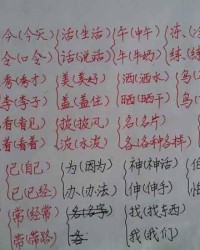 今(今天) 活(生活) 午(中午)
令(口令) 话(说话) 牛(牛奶) 练(练
秀(秀才) 美(美好) 洒(洒水)
季(季子) 盖(盖住) 晒(晒干)
看(看见) 披(披风) 名(名片)
着(看着) 波(水波) 各(各种各样)
己(自己) 为(因为) 神(神话)
已(已经) 办(办法) 伸(伸手)
常(经常) 找(找东西)
带(带路) 我(我们)